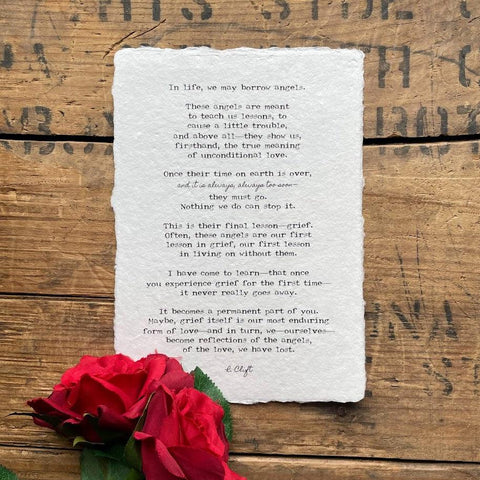 In life, we may borrow angels.
These angels are meant
to teach us lessons, to
cause a little trouble,
and above all—they show us,
firsthand, the true meaning
of unconditional love.
Once their time on earth is over,
and it is always, always too soon—
they must go.
Nothing we do can stop it.
This is their final lesson—grief.
Often, these angels are our first
lesson in grief, our first lesson
in living on without them.
I have come to learn—that once
you experience grief for the first time—
it never really goes away.
It becomes a permanent part of you.
Maybe, grief itself is our most enduring
form of love—and in turn, we—ourselves—
become reflections of the angels,
of the love, we have lost.
C Clift